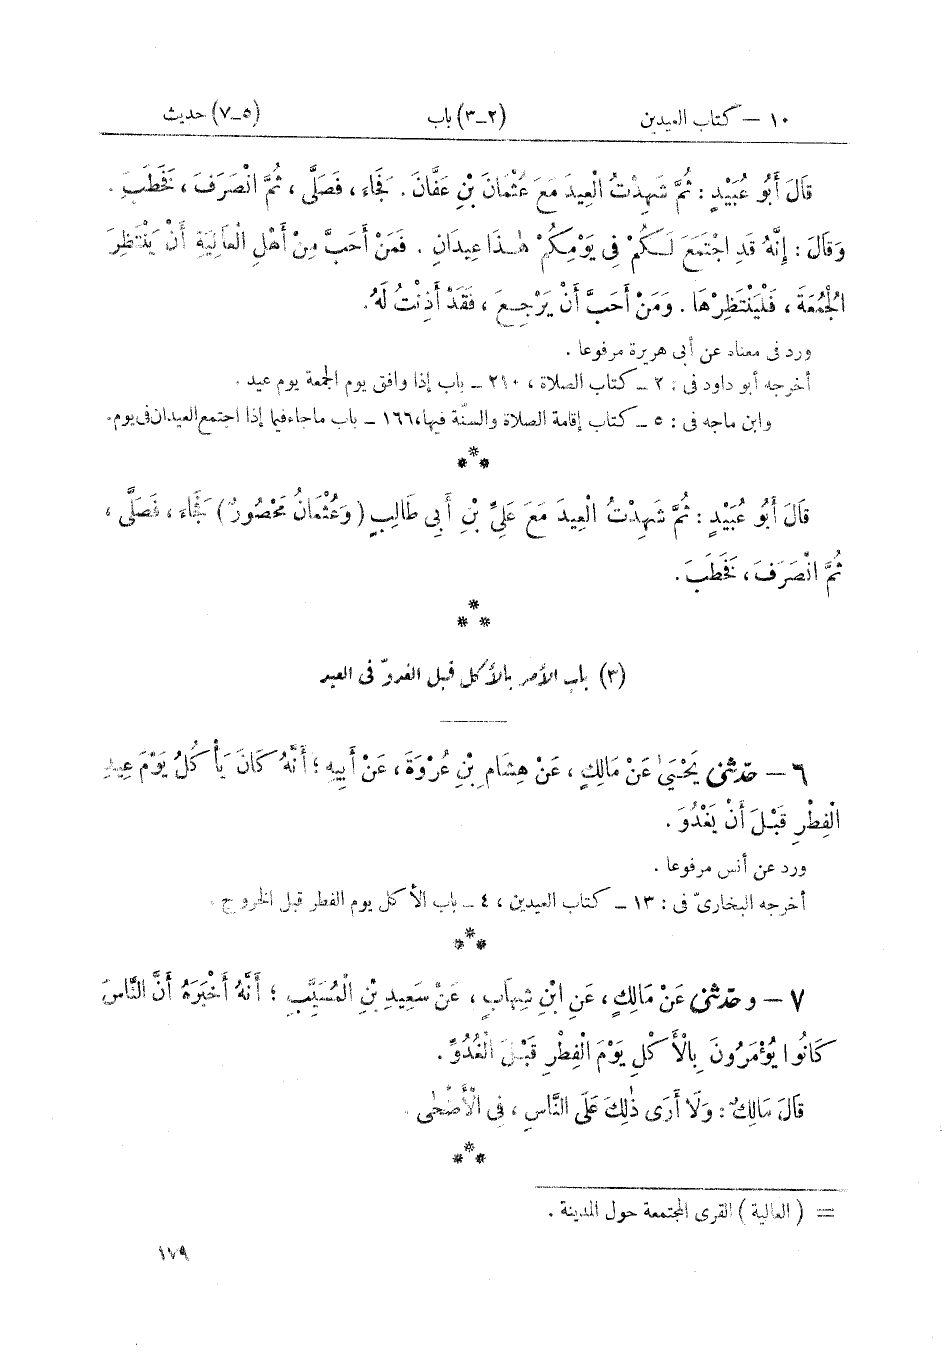 ١٠ – كتاب العيدين (٢_٣) باب (٥_٧) حديث
قَالَ أَبُو عُبَيْدٍ : ثُمَّ شَهِدْتُ الْعِيدَ مَعَ عُثْمَانَ بْنِ عَفَّانَ . فَجَاءَ ، فَصَلَّى ، ثُمَّ انْصَرَفَ ، فَخَطَبَ .
وَقَالَ : إِنَّهُ قَدِ اجْتَمَعَ لَكُمْ فِي يَوْمِكُمْ هٰذَا عِيدَانِ . فَمَنْ أَحَبَّ مِنْ أَهْلِ الْعَالِيَةِ أَنْ يَنْتَظِرَ
الْجُمُعَةَ ، فَلْيَنْتَظِرْهَا . وَمَنْ أَحَبَّ أَنْ يَرْجِعَ ، فَقَدْ أَذِنْتُ لَهُ .
ورد فى معناه عن أبى هريرة مرفوعا .
أخرجه أبو داود فى : ٢ ــ كتاب الصلاة ، ٢١٠ ــ باب إذا وافق يوم الجمعة يوم عيد .
وابن ماجه فى : ٥ ــ كتاب إقامة الصلاة والسنّة فيها، ١٦٦ ــ باب ماجاء فيما إذا اجتمع العيدان فى يوم.
***
قَالَ أَبُو عُبَيْدٍ : ثُمَّ شَهِدْتُ الْعِيدَ مَعَ عَلِيِّ بْنِ أَبِي طَالِبٍ ( وَعُثْمَانُ مَحْصُورٌ ) فَجَاءَ ، فَصَلَّى ،
ثُمَّ انْصَرَفَ ، فَخَطَبَ .
***
(٣) باب الأمر بالأكل قبل الغدوّ فى العيد
٦ – حدّثنى يَحْيَىٰ عَنْ مَالِكٍ ، عَنْ هِشَامِ بْنِ عُرْوَةَ ، عَنْ أَبِيهِ ؛ أَنَّهُ كَانَ يَأْكُلُ يَوْمَ عِيدِ
الْفِطْرِ قَبْلَ أَنْ يَغْدُوَ .
ورد عن أنس مرفوعا .
أخرجه البخارىّ فى : ١٣ ــ كتاب العيدين ، ٤ ــ باب الأكل يوم الفطر قبل الخروج .
***
٧ – وحدّثنى عَنْ مَالِكٍ ، عَنِ ابْنِ شِهَابٍ ، عَنْ سَعِيدِ بْنِ الْمُسَيَّبِ ؛ أَنَّهُ أَخْبَرَهُ أَنَّ النَّاسَ
كَانُوا يُؤْمَرُونَ بِالْأَكْلِ يَوْمَ الْفِطْرِ قَبْلَ الْغُدُوِّ .
قَالَ مَالِكٌ : وَلَا أَرَى ذٰلِكَ عَلَى النَّاسِ ، فِي الْأَضْحَى .
***
= ( العالية ) القرى المجتمعة حول المدينة .
١٧٩